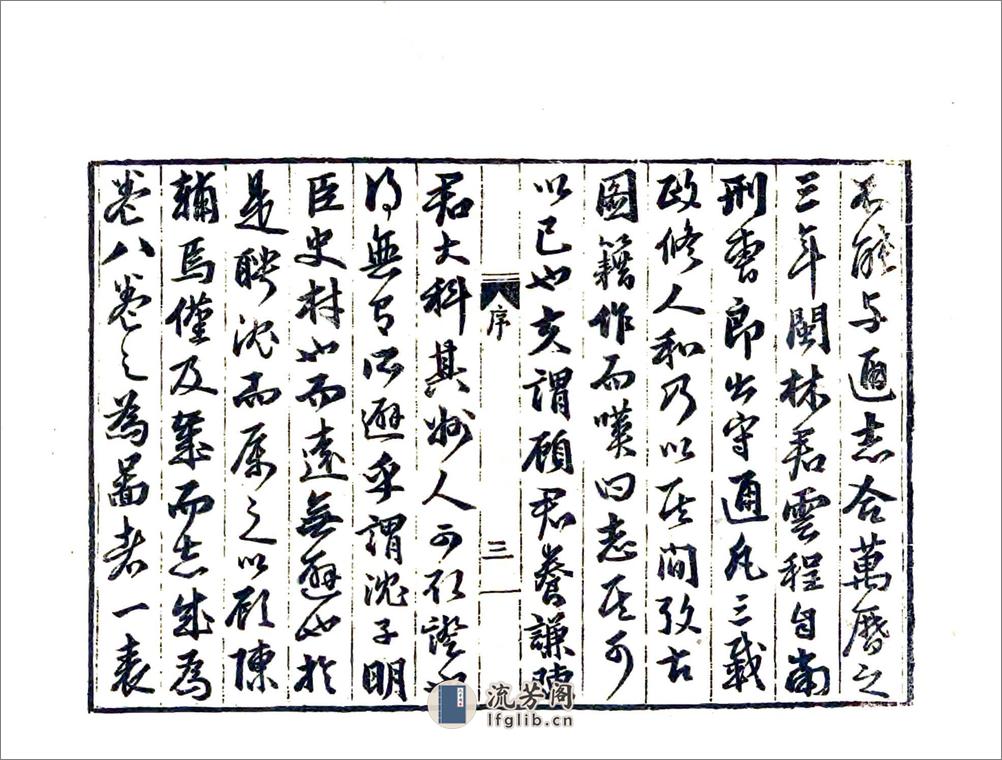 不能与通志合萬曆之
三年閩林君雲程自南
刑曹郎出守通凡三載
政修人和乃以其間攷古
圖籍作而嘆曰志其可
以已也亥謂顧君養謙陳
序
三
君大科其州人而引證也
得無有所避乎謂沈子明
臣史材也而遠無避也於
是聘沈而屬之以顧陳
輔焉僅及朞而志成為
卷八卷之為啚者一表
流芳阁
lfglib.cn